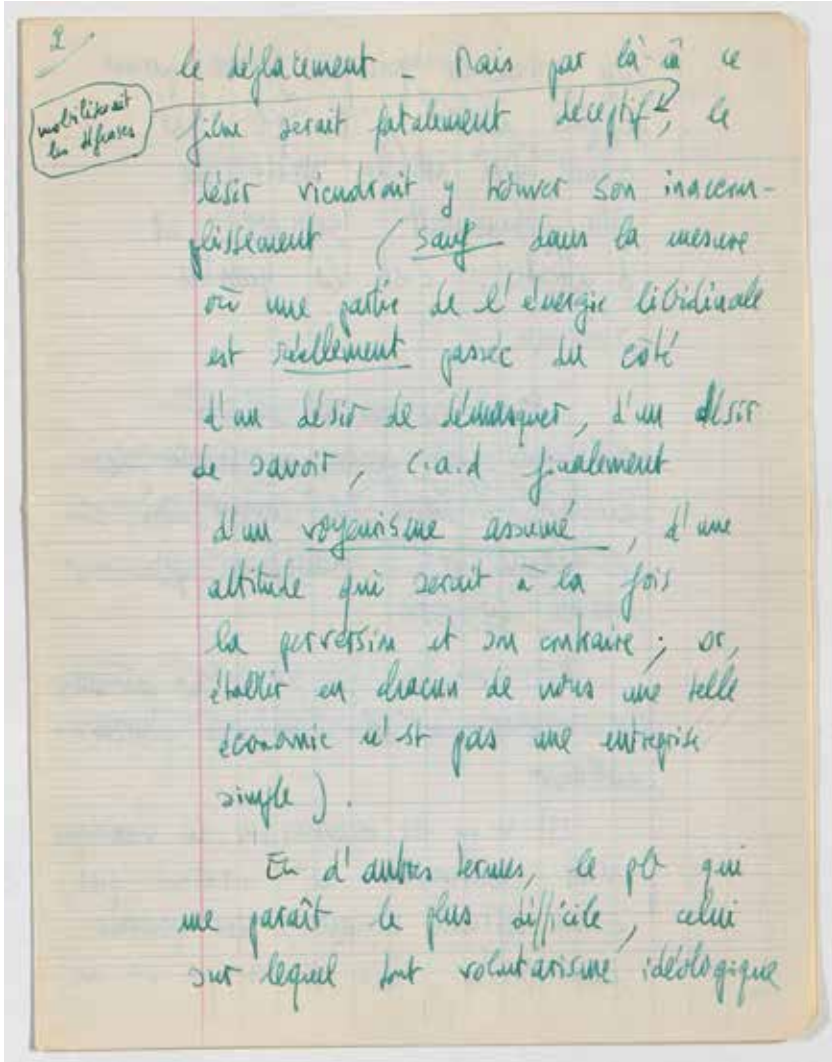 2
le déplacement _ Mais par là-m̂ ce
mobiliserait
les défenses
film serait fatalement déceptif, le
désir viendrait y trouver son inaccom-
plissement (sauf dans la mesure
où une partie de l'énergie libidinale
est réellement passée du côté
d'un désir de démasquer, d'un désir
de savoir, c.a.d finalement
d'un voyeurisme assumé, d'une
attitude qui serait à la fois
la perversion et son contraire ; or,
établir en chacun de nous une telle
économie n'est pas une entreprise
simple).
En d'autres termes, le pb qui
me paraît le plus difficile, celui
sur lequel tout volontarisme idéologique